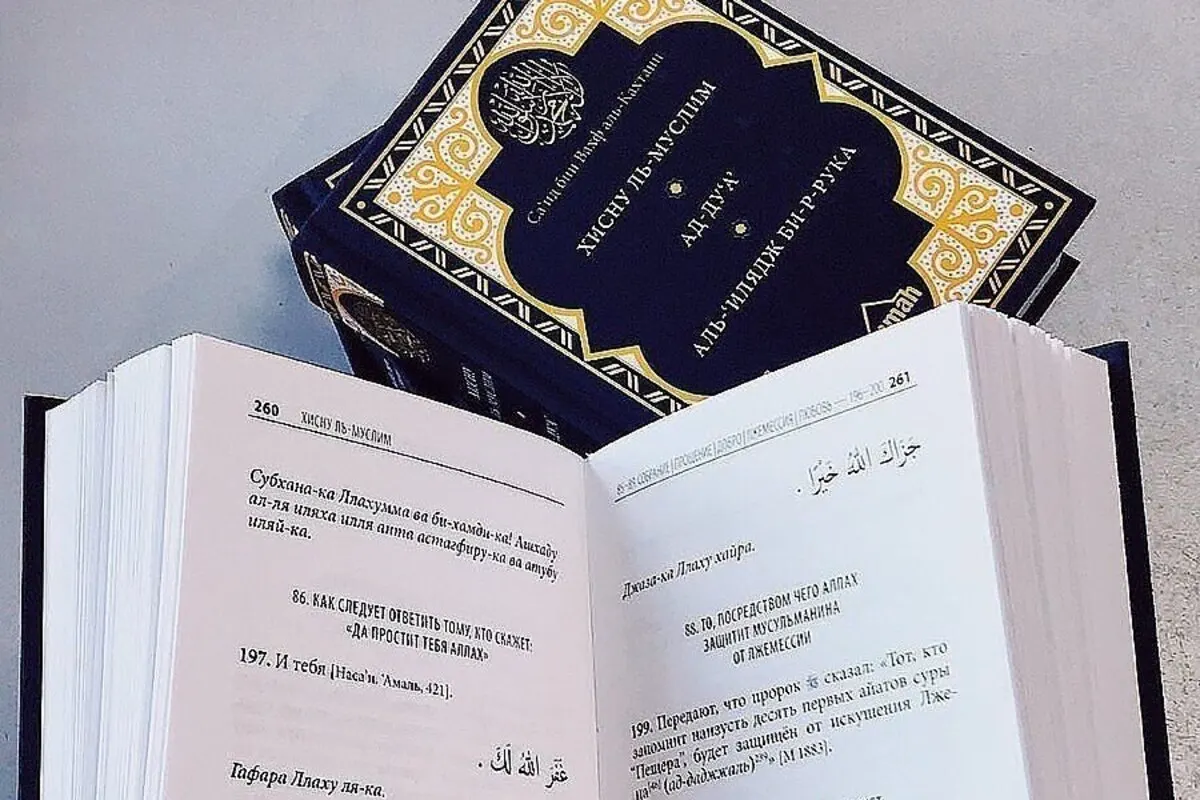 Са‘ид бин Вахф аль-Кахтани
ХИСНУ ЛЬ-МУСЛИМ
АД-ДУ‘А’
АЛЬ-‘ИЛЯДЖ БИ-Р-РУКА
mmah
260 ХИСНУ ЛЬ-МУСЛИМ
Субхана-ка Ллахумма ва би-хамди-ка! Ашхаду
ал-ля иляха илля анта астагфиру-ка ва атубу
иляй-ка.
86. КАК СЛЕДУЕТ ОТВЕТИТЬ ТОМУ, КТО СКАЖЕТ:
«ДА ПРОСТИТ ТЕБЯ АЛЛАХ»
197. И тебя [Наса’и. ‘Амаль, 421].
غَفَرَ اللهُ لَكَ .
Гафара Ллаху ля-ка.
85–88. СОБРАНИЕ | ПРОЩЕНИЕ | ДОБРО | ЛЖЕМЕССИЯ | ЛЮБОВЬ — 196–200 261
جَزَاكَ اللهُ خَيْرًا .
Джаза-ка Ллаху хайра.
88. ТО, ПОСРЕДСТВОМ ЧЕГО АЛЛАХ
ЗАЩИТИТ МУСУЛЬМАНИНА
ОТ ЛЖЕМЕССИИ
199. Передают, что пророк ﷺ сказал: «Тот, кто
запомнит наизусть десять первых айатов суры
“Пещера”, будет защищён от искушения Лже-
ца (ад-даджжаль)» [М 1883].